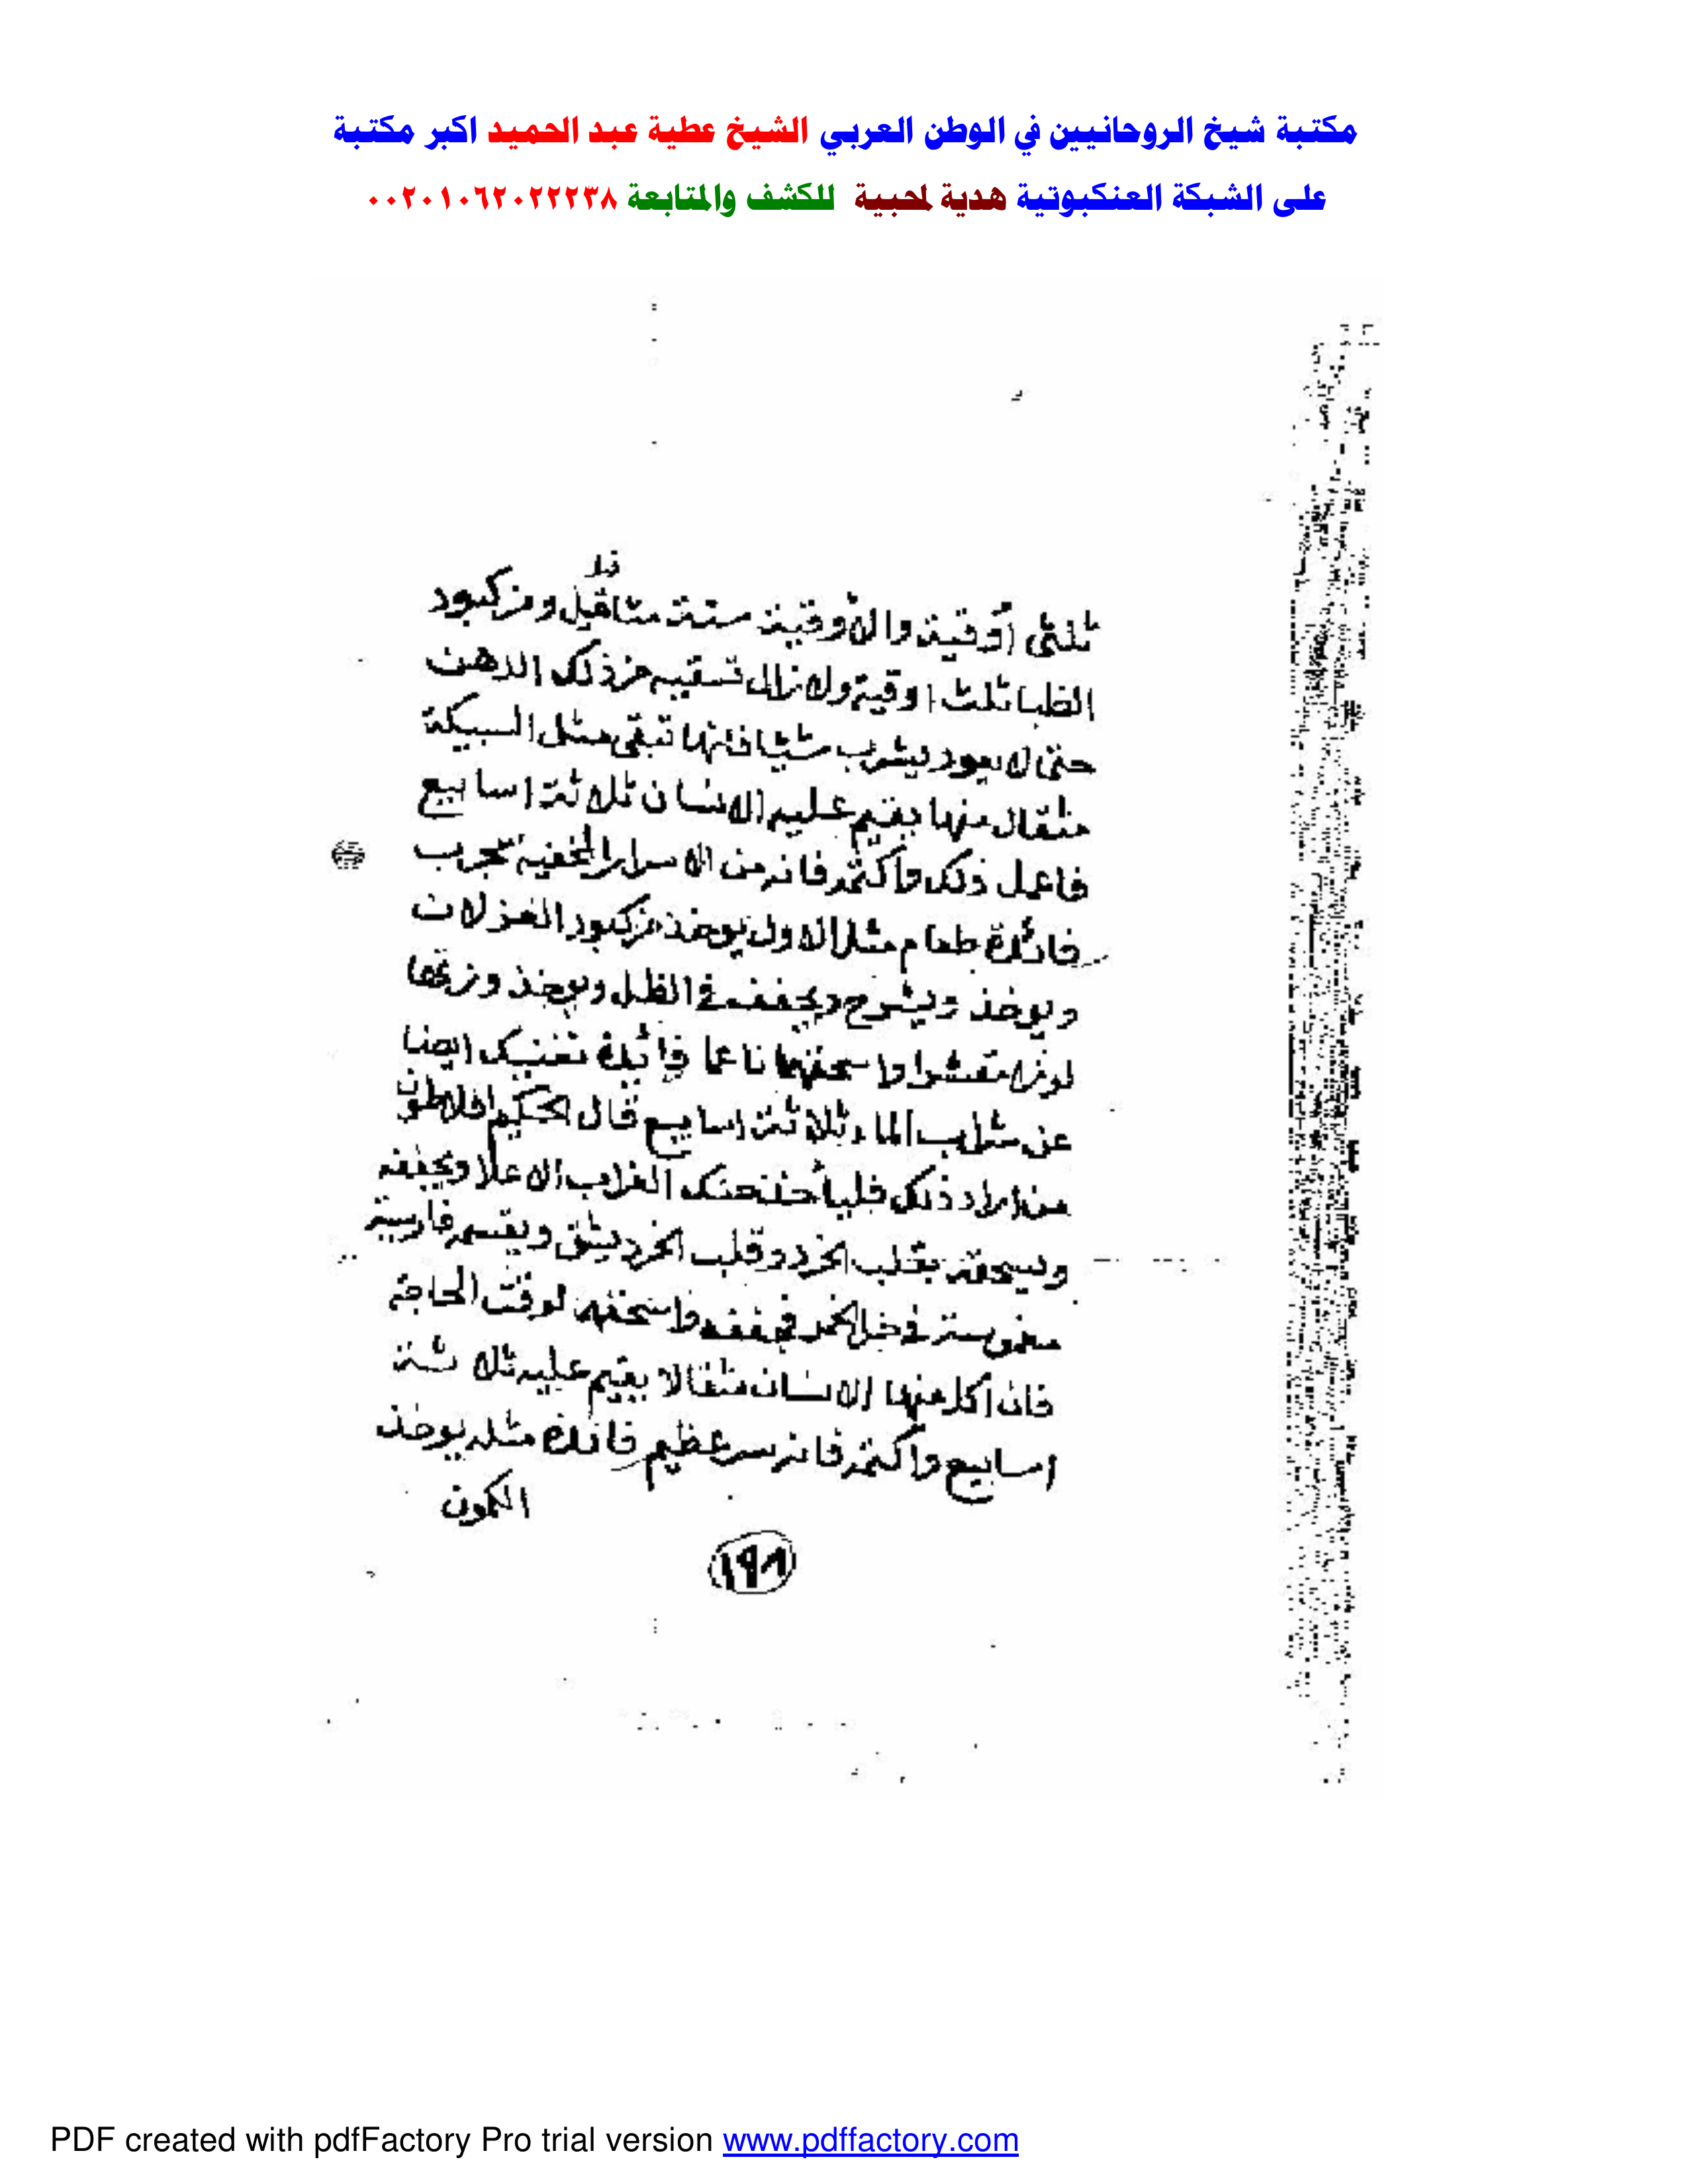 مكتبة شيخ الروحانيين في الوطن العربي الشيخ عطية عبد الحميد اكبر مكتبة
على الشبكة العنكبوتية هدية لمحبيه للكشف والمتابعة ٠٠٢٠١٠٦٢٠٢٢٢٣٨
ثلثى أوقية والأوقية ستة مثاقيل ومن كبود
الظبا ثلث اوقية ولا تزال تسقيه من ذلك الدهن
حتى لا يعود يشرب شيئا فانها تبقى مثل السبيكة
مثقال منها يقيم عليه الانسان ثلاثة اسابيع
فاعمل ذلك واكتمه فانه من الاسرار المخفية مجرب
فائدة طعام مثل الاول يوخذ من كبود الغزلان
ويوخذ ويشرح ويجففه في الظل ويوخذ وزنها
لوز مقشر واسحقهما ناعما فائدة تغنيك ايضا
عن شراب الماء ثلاثة اسابيع قال الحكيم افلاطون
من اراد ذلك فلياخذ حنك الغراب الاعلا ويجففه
ويسحقه بقلب ويقسم فارسية
في خل الخمر واسحقه لوقت الحاجة
فان أكل منها الانسان مثقالا يقيم عليه ثلاثة
اسابيع واكتمه فانه سر عظيم فائدة مثله يوخذ
الكمون
١٩٨
PDF created with pdfFactory Pro trial version www.pdffactory.com